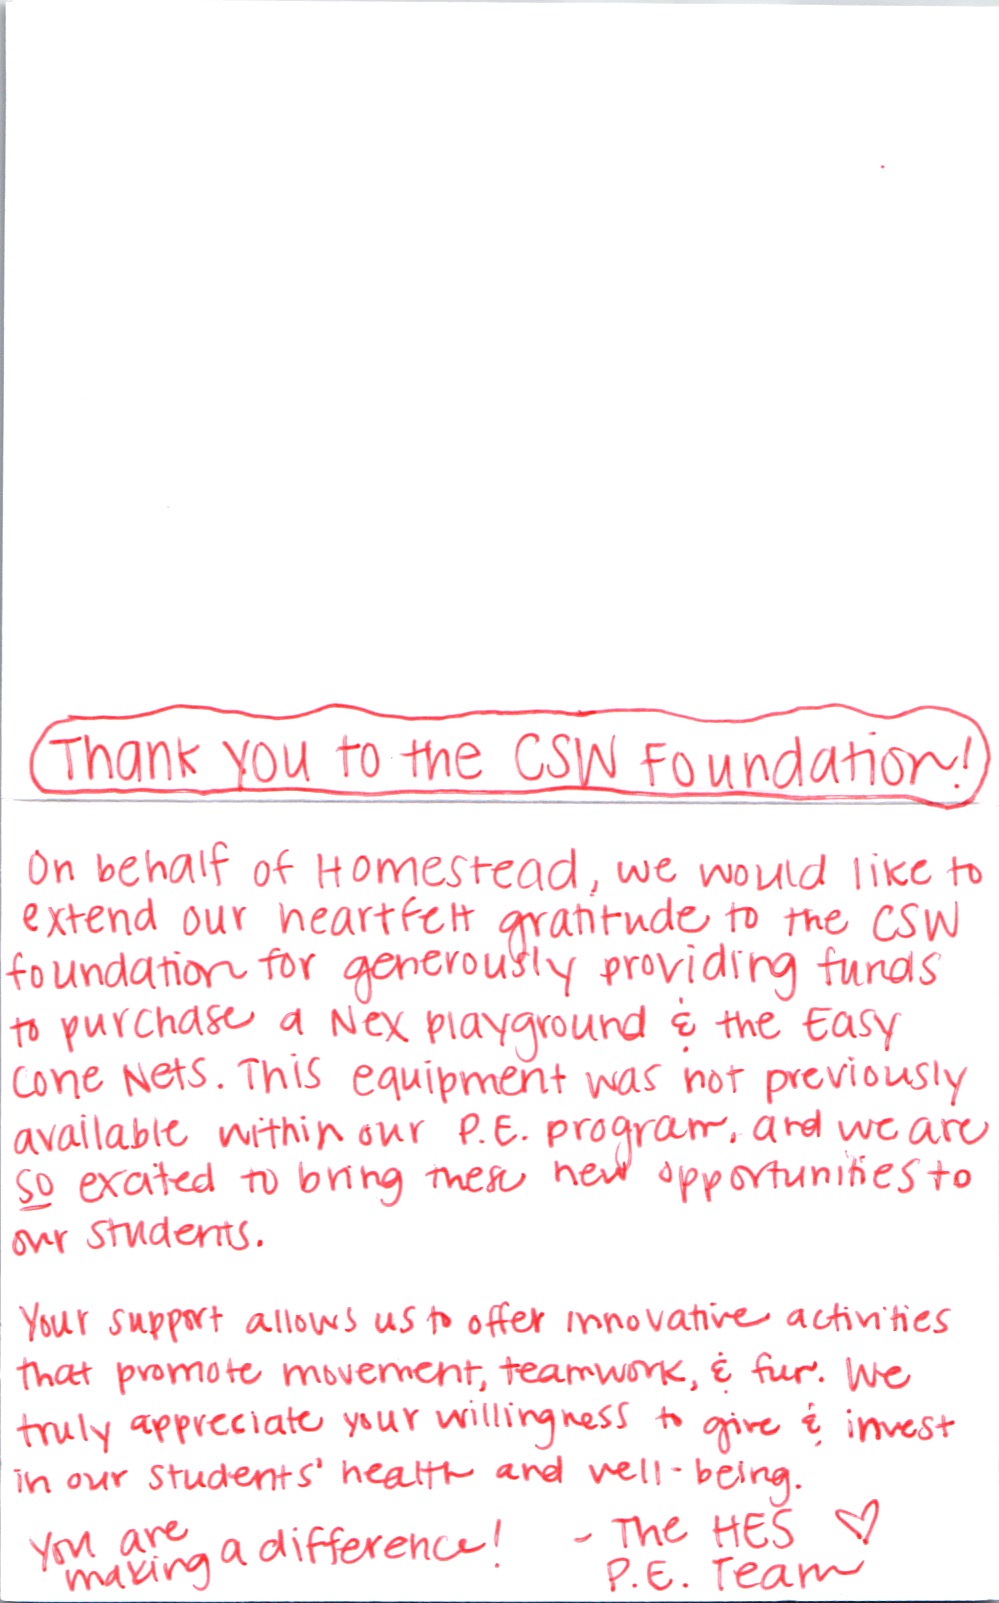 Thank you to the CSW Foundation!
On behalf of Homestead, we would like to
extend our heartfelt gratitude to the CSW
foundation for generously providing funds
to purchase a Nex playground & the Easy
Cone Nets. This equipment was not previously
available within our P.E. program, and we are
so excited to bring these new opportunities to
our students.
Your support allows us to offer innovative activities
that promote movement, teamwork, & fun. We
truly appreciate your willingness to give & invest
in our students' health and well-being.
You are
making a difference!
- The HES ♡
P.E. Team